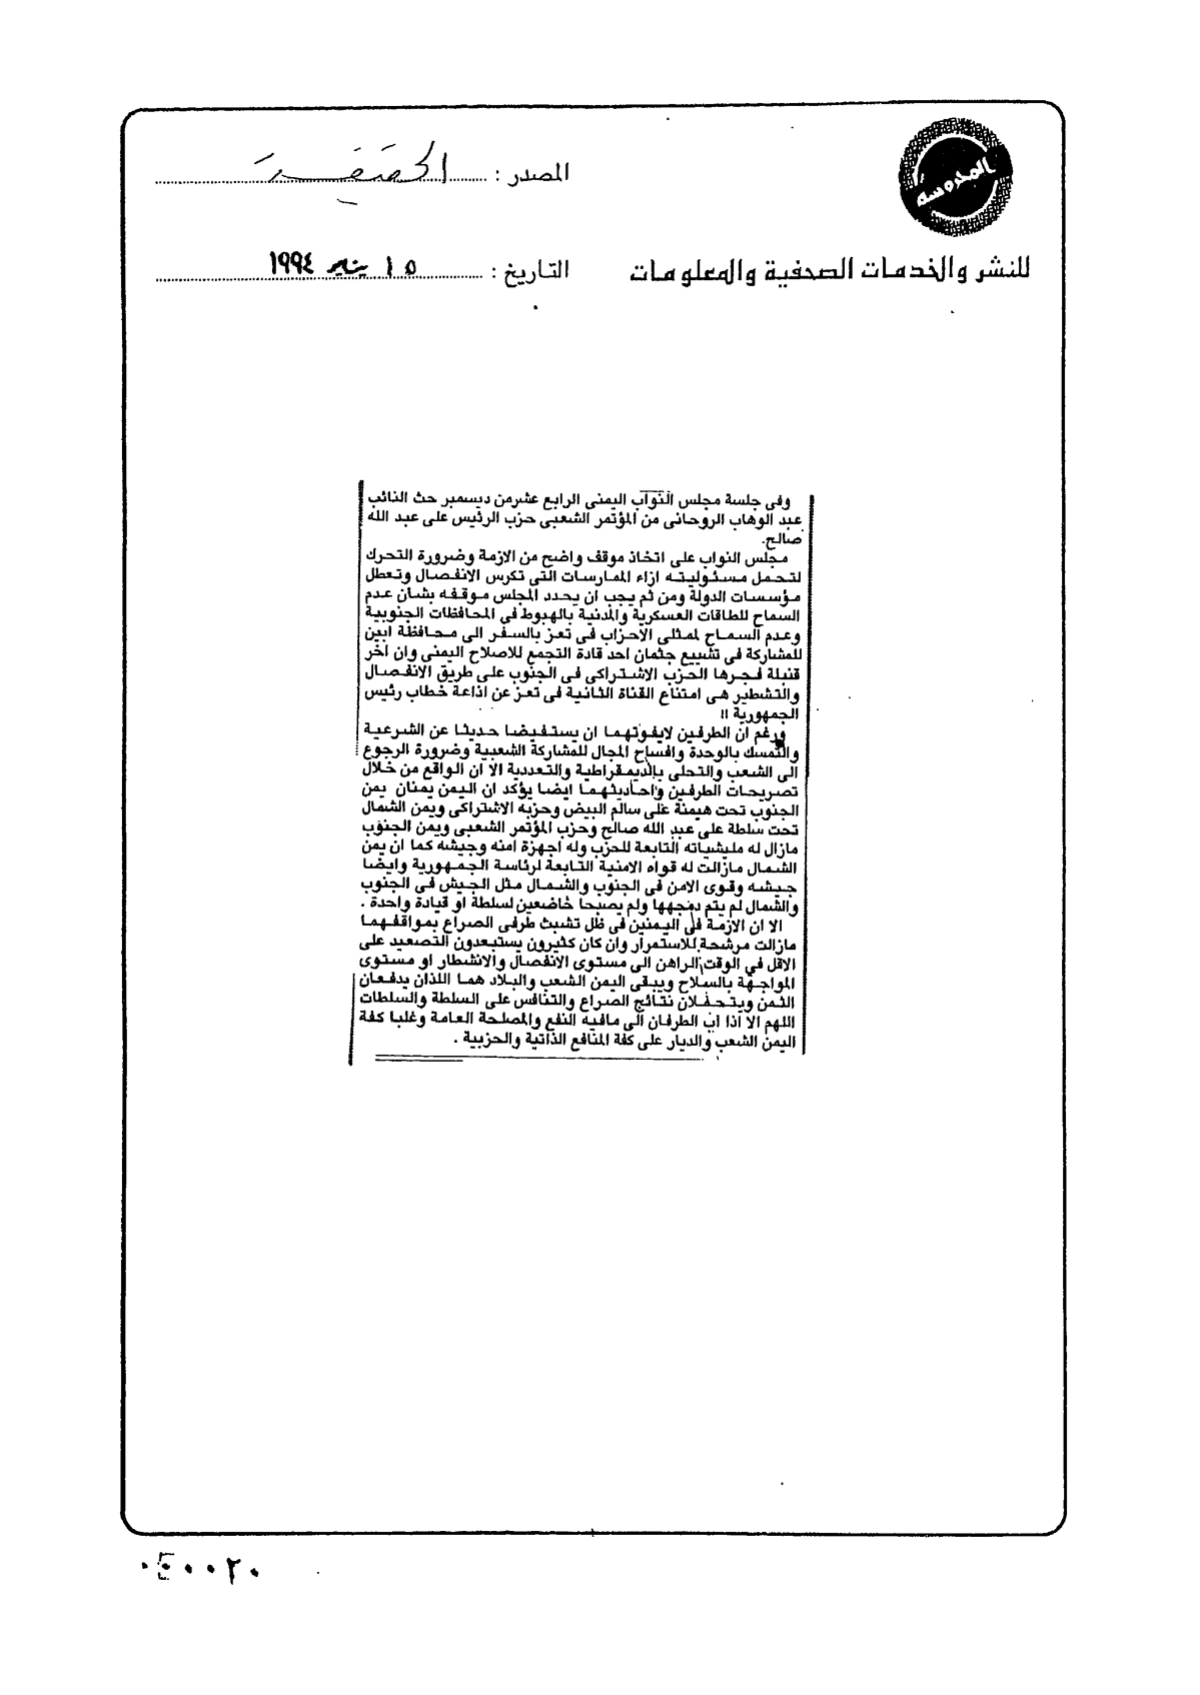 المحروسة
المصدر : الحقيقة
للنشر والخدمات الصحفية والمعلومات
التاريخ : ١٥ يناير ١٩٩٤
وفى جلسة مجلس النواب اليمنى الرابع عشرمن ديسمبر حث النائب
عبد الوهاب الروحانى من المؤتمر الشعبى حزب الرئيس على عبد الله
صالح.
مجلس النواب على اتخاذ موقف واضح من الازمة وضرورة التحرك
لتحمل مسئوليته ازاء الممارسات التى تكرس الانفصال وتعطل
مؤسسات الدولة ومن ثم يجب ان يحدد المجلس موقفه بشان عدم
السماح للطاقات العسكرية والمدنية بالهبوط فى المحافظات الجنوبية
وعدم السماح لممثلى الاحزاب فى تعز بالسفر الى محافظة ابين
للمشاركة فى تشييع جثمان احد قادة التجمع للاصلاح اليمنى وان اخر
قنبلة فجرها الحزب الاشتراكى فى الجنوب على طريق الانفصال
والتشطير هى امتناع القناة الثانية فى تعز عن اذاعة خطاب رئيس
الجمهورية !!
ورغم ان الطرفين لايفوتهما ان يستفيضا حديثا عن الشرعية
والتمسك بالوحدة وافساح المجال للمشاركة الشعبية وضرورة الرجوع
الى الشعب والتحلى بالديمقراطية والتعددية الا ان الواقع من خلال
تصريحات الطرفين واحاديثهما ايضا يؤكد ان اليمن يمنان يمن
الجنوب تحت هيمنة على سالم البيض وحزبه الاشتراكى ويمن الشمال
تحت سلطة على عبد الله صالح وحزب المؤتمر الشعبى ويمن الجنوب
مازال له مليشياته التابعة للحزب وله اجهزة امنه وجيشه كما ان يمن
الشمال مازالت له قواه الامنية التابعة لرئاسة الجمهورية وايضا
جيشه وقوى الامن فى الجنوب والشمال مثل الجيش فى الجنوب
والشمال لم يتم دمجهها ولم يصبحا خاضعين لسلطة او قيادة واحدة .
الا ان الازمة فى اليمنين فى ظل تشبث طرفى الصراع بمواقفهما
مازالت مرشحة للاستمرار وان كان كثيرون يستبعدون التصعيد على
الاقل في الوقت الراهن الى مستوى الانفصال والانشطار او مستوى
المواجهة بالسلاح ويبقى اليمن الشعب والبلاد هما اللذان يدفعان
الثمن ويتحملان نتائج الصراع والتنافس على السلطة والسلطات
اللهم الا اذا آب الطرفان الى مافيه النفع والمصلحة العامة وغلبا كفة
اليمن الشعب والديار على كفة المنافع الذاتية والحزبية .